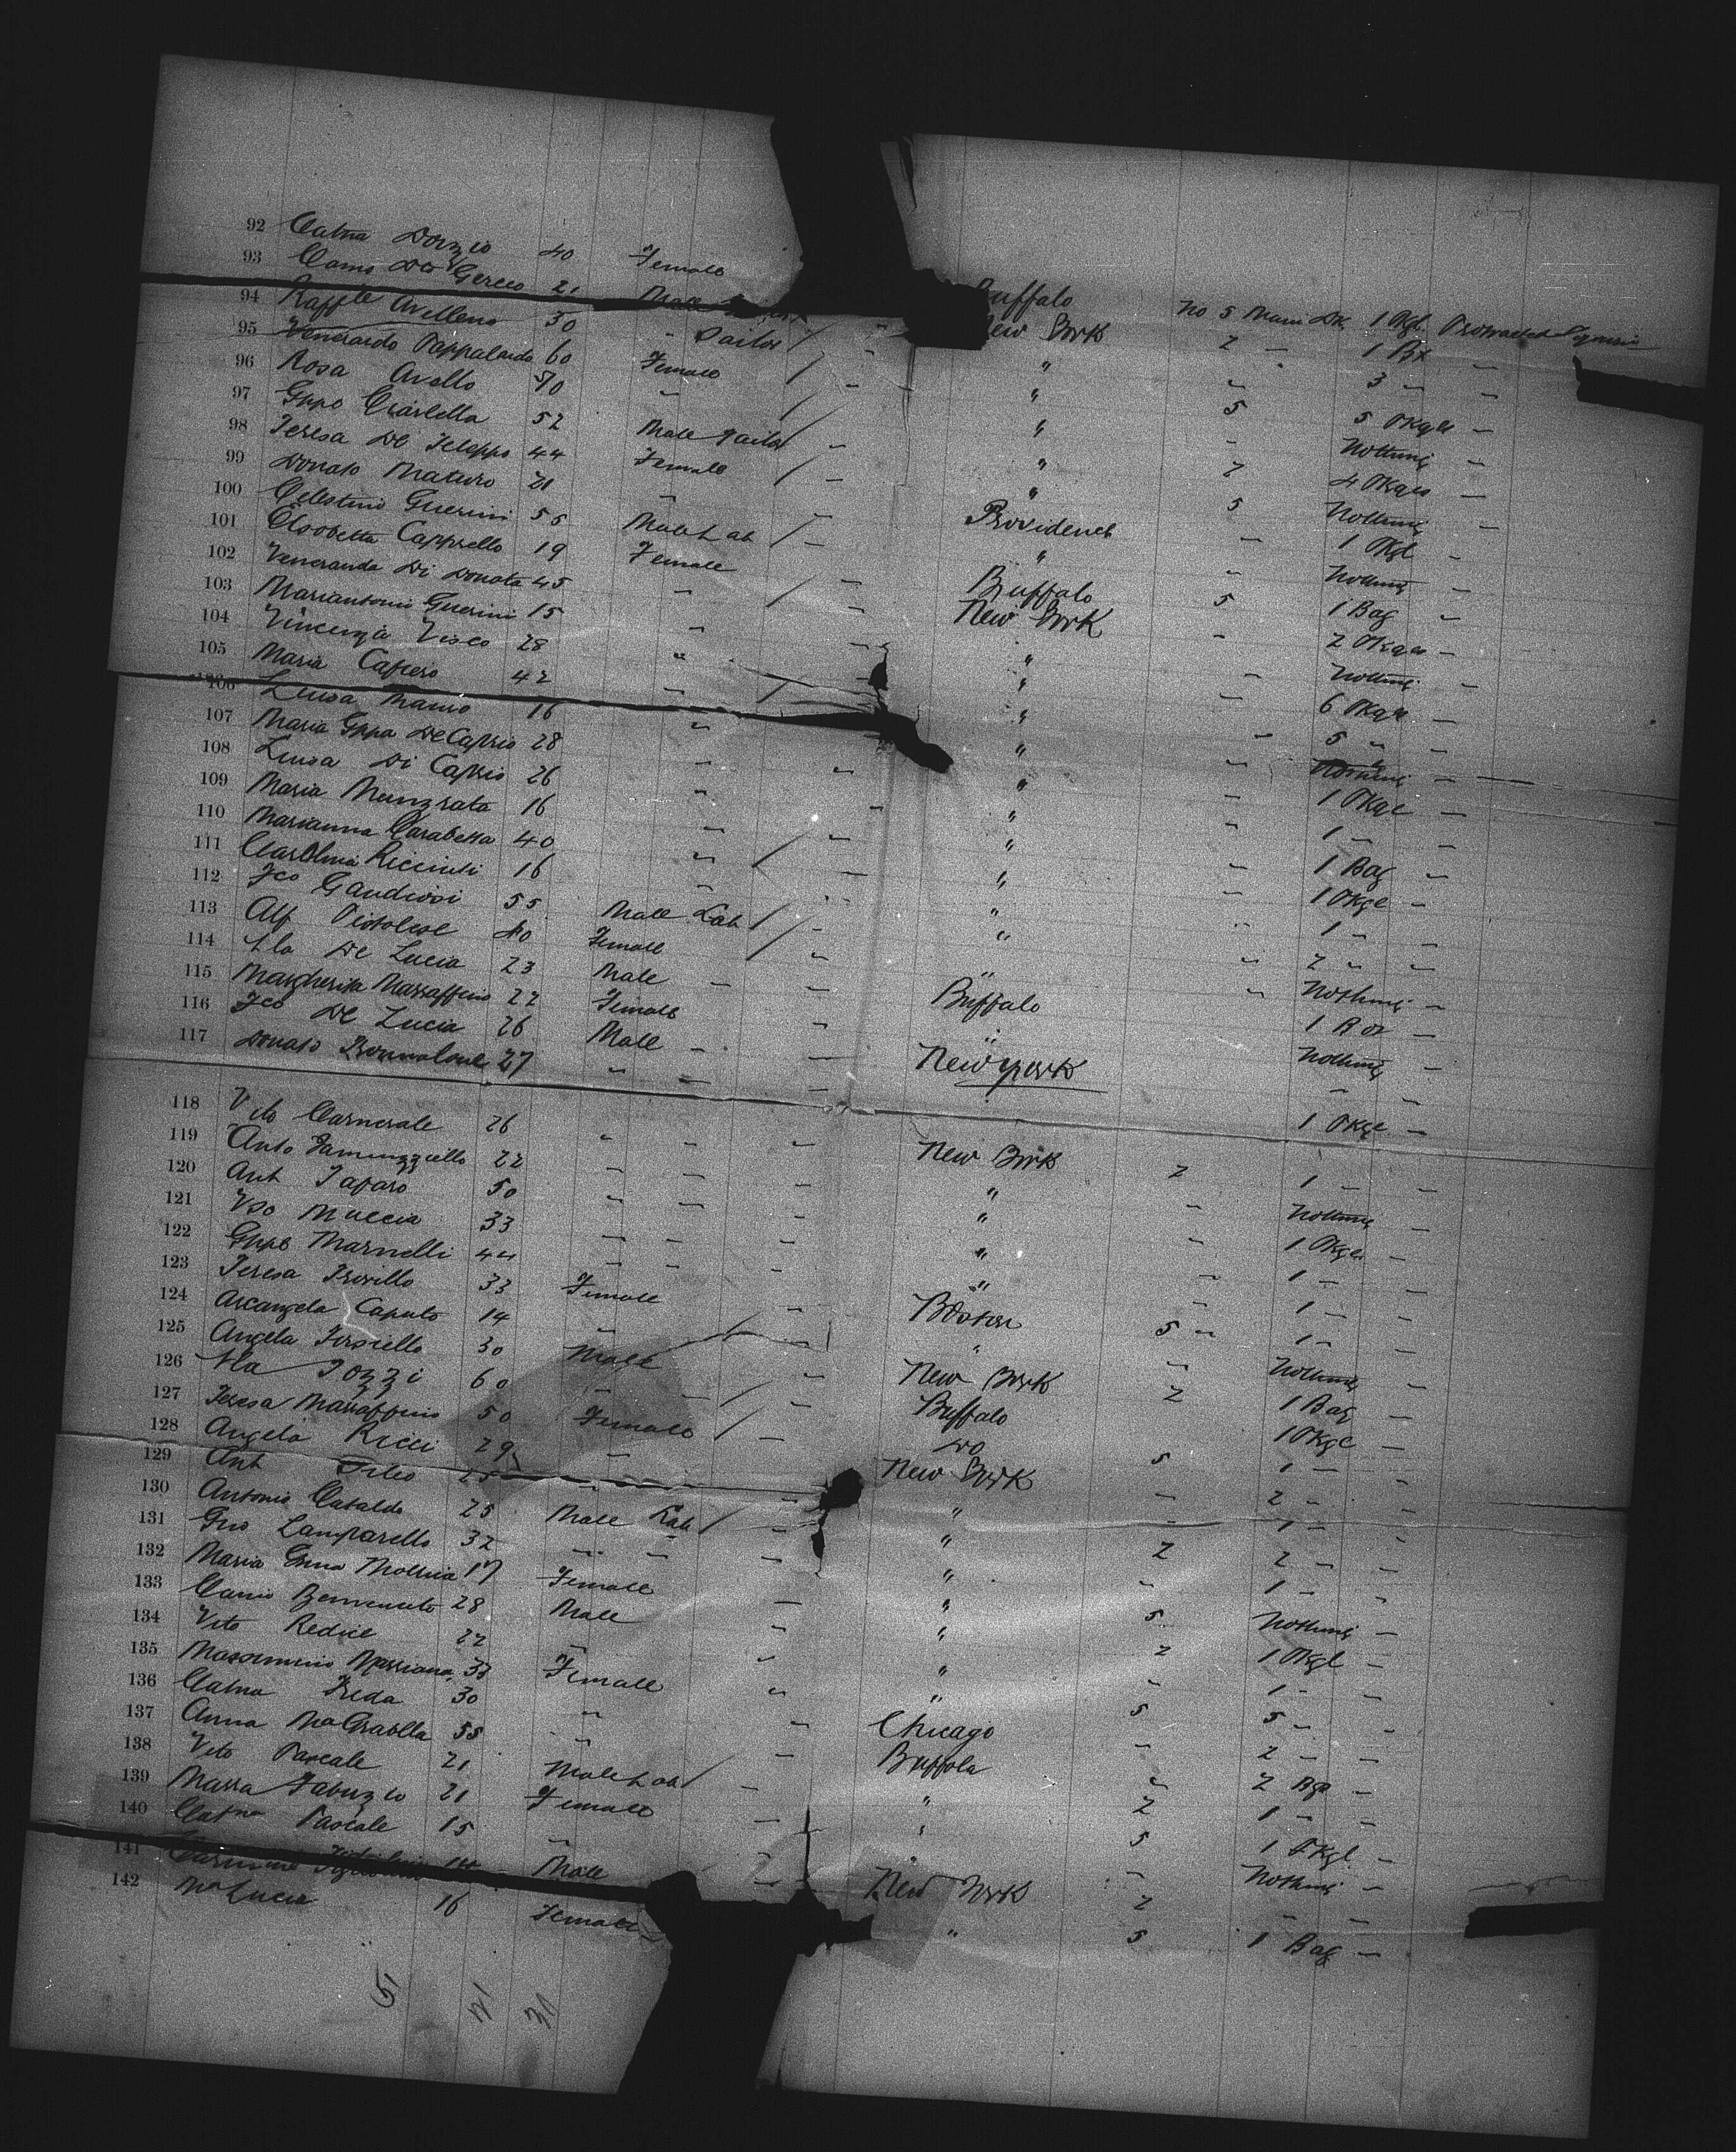 92 Catna Dorzio 40 Female Buffalo No 5 Main Dk 1 Pkge Protracted Sojourn
93 Camo De Greco 21 Male New York 2 — 1 Bx —
94 Raffle Avelleno 30 " Sailor / — " " 3 " —
95 Venerando Pappalardo 60 Female / — " 5 5 Pkgs —
96 Rosa Avello 70 " / — " " Nothing —
97 Gppe Ciarlella 52 Male Tailor — " 2 4 Pkges —
98 Teresa De Feleppo 44 Female / — " 5 Nothing —
99 Donato Maturo 21 " — Providence — 1 Pkge —
100 Celestino Guerini 56 Male Lab / — " " Nothing —
101 Elsobetta Cappiello 19 Female — Buffalo 5 1 Bag —
102 Veneranda Di Donata 45 " / — New York — 2 Pkges —
103 Mariantonia Guerini 15 " — " — Nothing —
104 Vincenza Visco 28 " — " — 6 Pkgs —
105 Maria Cafiero 42 " / " — 5 " —
106 Luisa Mauro 16 " " — Nothing —
107 Maria Gppa De Caprio 28 " — " — 1 Pkge —
108 Luisa Di Caprio 26 " — " — 1 — —
109 Maria Nunzrata 16 " — " — 1 Bag —
110 Marianna Carabetta 40 " / — " — 1 Pkge —
111 Carolina Ricciuti 16 " — " " 1 — —
112 Fco Gaudiosi 55 Male Lab / — " " 2 " —
113 Alf Pistolese 40 Female / — " " Nothing —
114 Na De Lucia 23 Male — — Buffalo 1 Box —
115 Margherita Massaffero 22 Female — " Nothing —
116 Fco De Lucia 26 Male — — New York — —
117 Donato 27 " — — 1 Pkge —
118 Vito Carnevale 26 " — — New York 2 1 — —
119 Anto 22 — — — " — Nothing —
120 Ant Taparo 50 — — — " — 1 Pkge —
121 Vso Muccia 33 — — — " — 1 — —
122 Gppe Marnelli 44 — — — " — 1 — —
123 Teresa Trovillo 33 Female — Boston 5 — 1 — —
124 Arcangela Caputo 14 — — " — Nothing —
125 Angela Torsiello 30 Male — New York 2 1 Bag —
126 Na Tozzi 60 — — / — Buffalo 1 Pkge —
127 Teresa Massaffero 50 Female / — Do 5 1 — —
128 Angela Ricci 29 — New York — 2 — —
129 Ant Tileo 25 — — " — 1 — —
130 Antonio Cataldo 25 Male Lab / — " 2 2 — —
131 Gno Lamparello 32 — — — " — 1 — —
132 Maria Gnna Molluia 17 Female — " 5 Nothing —
133 Camio Benvenuto 28 Male — " 2 1 Pkge —
134 Vito Redice 22 — — " — 1 — —
135 Massiminio Marriana 33 Female — " 5 5 — —
136 Catna Freda 30 " — Chicago — 2 — —
137 Anna Ma Graolla 55 — — Buffola — 2 Bgs —
138 Vito Pascale 21 Male Lab / — " 2 1 — —
139 Massa Fabuzio 21 Female — " 5 1 Pkge —
140 Catna Pascale 15 — — " — Nothing —
141 Carmine 14 Male New York 2 — —
142 Ma Lucia 16 Female — " 5 1 Bag —
51 21 30